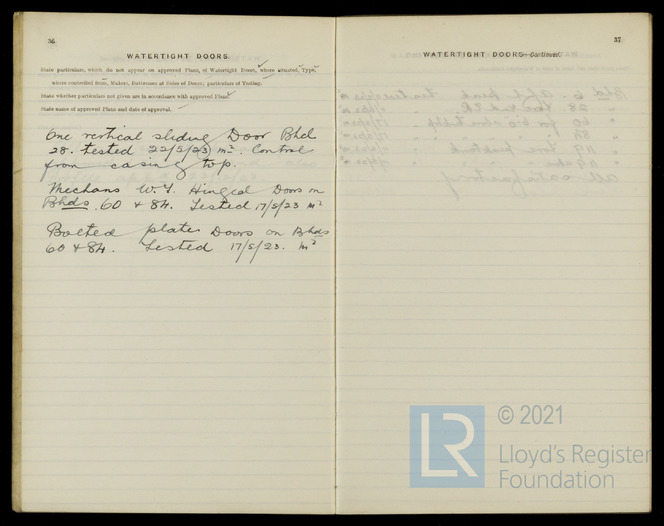 36.
WATERTIGHT DOORS.
State particulars, which do not appear on approved Plans, of Watertight Doors, where situated, Type,
where controlled from, Makers, Buttresses at Sides of Doors, particulars of Testing.
State whether particulars not given are in accordance with approved Plans.
State name of approved Plans and date of approval.
One vertical sliding Door Bhd
28. tested 22/5/23 m². Control
from casing top.
Mechans W.T. Hinged Doors on
Bhds. 60 & 84. Tested 17/5/23 m²
Bolted plate Doors on Bhds
60 & 84. Tested 17/5/23. m²
37
WATERTIGHT DOORS—Continued.
LR
© 2021
Lloyd's Register
Foundation